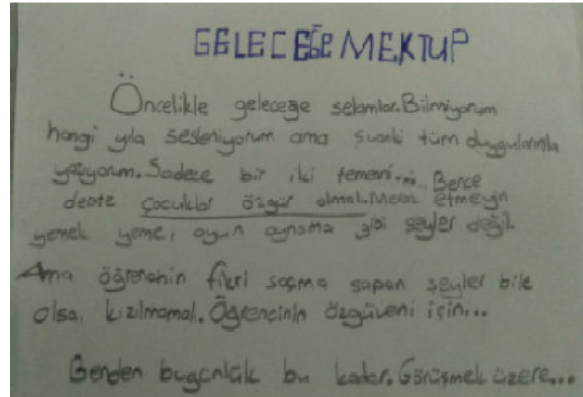 GELECEĞE MEKTUP
Öncelikle geleceğe selamlar. Bilmiyorum
hangi yıla sesleniyorum ama şuanki tüm duygularımla
yazıyorum. Sadece bir iki temenni... Bence
derste çocuklar özgür olmalı. Merak etmeyin
yemek yeme, oyun oynama gibi şeyler değil.
Ama öğrencinin fikri saçma sapan şeyler bile
olsa, kızılmamalı. Öğrencinin özgüveni için...
Benden bugünlük bu kadar. Görüşmek üzere...